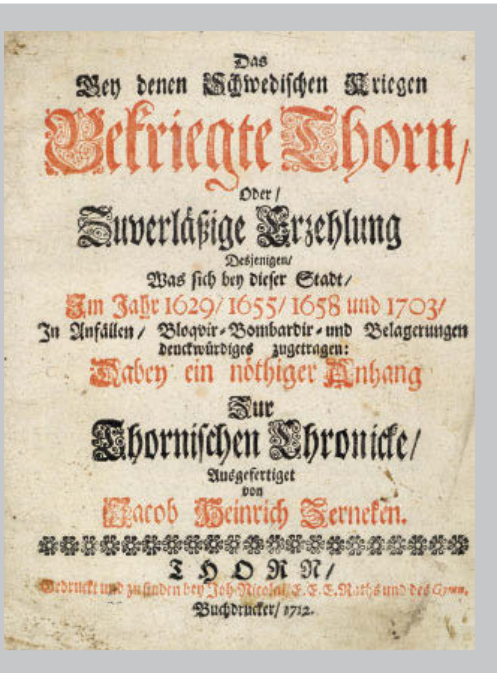 Das
Bey denen Schwedischen Kriegen
Bekriegte Thorn/
Oder/
Zuverläßige Erzehlung
Desjenigen/
Was sich bey dieser Stadt/
Im Jahr 1629/ 1655/ 1658 und 1703/
In Anfällen/ Bloqvir-Bombardir-und Belagerungen
denckwürdiges zugetragen:
Dabey ein nöthiger Anhang
Zur
Thornischen Chronicke/
Ausgefertiget
von
Jacob Heinrich Zerneken.
THORN/
Gedruckt und zu finden bey Joh. Nicolai, E.E.E. Raths und des Gymn.
Buchdrucker/ 1712.